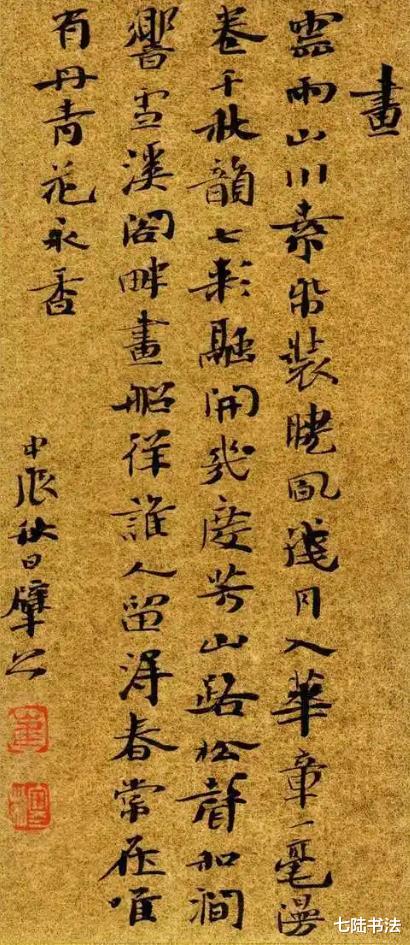 畫
靈雨山川素帛裝曉風淺月入華章一毫漫
卷千秋韻七彩融開幾度芳山路松聲和澗
響雪溪閣畔畫船徉誰人留得春常在唯
有丹青花永香
甲辰秋日
七陆书法